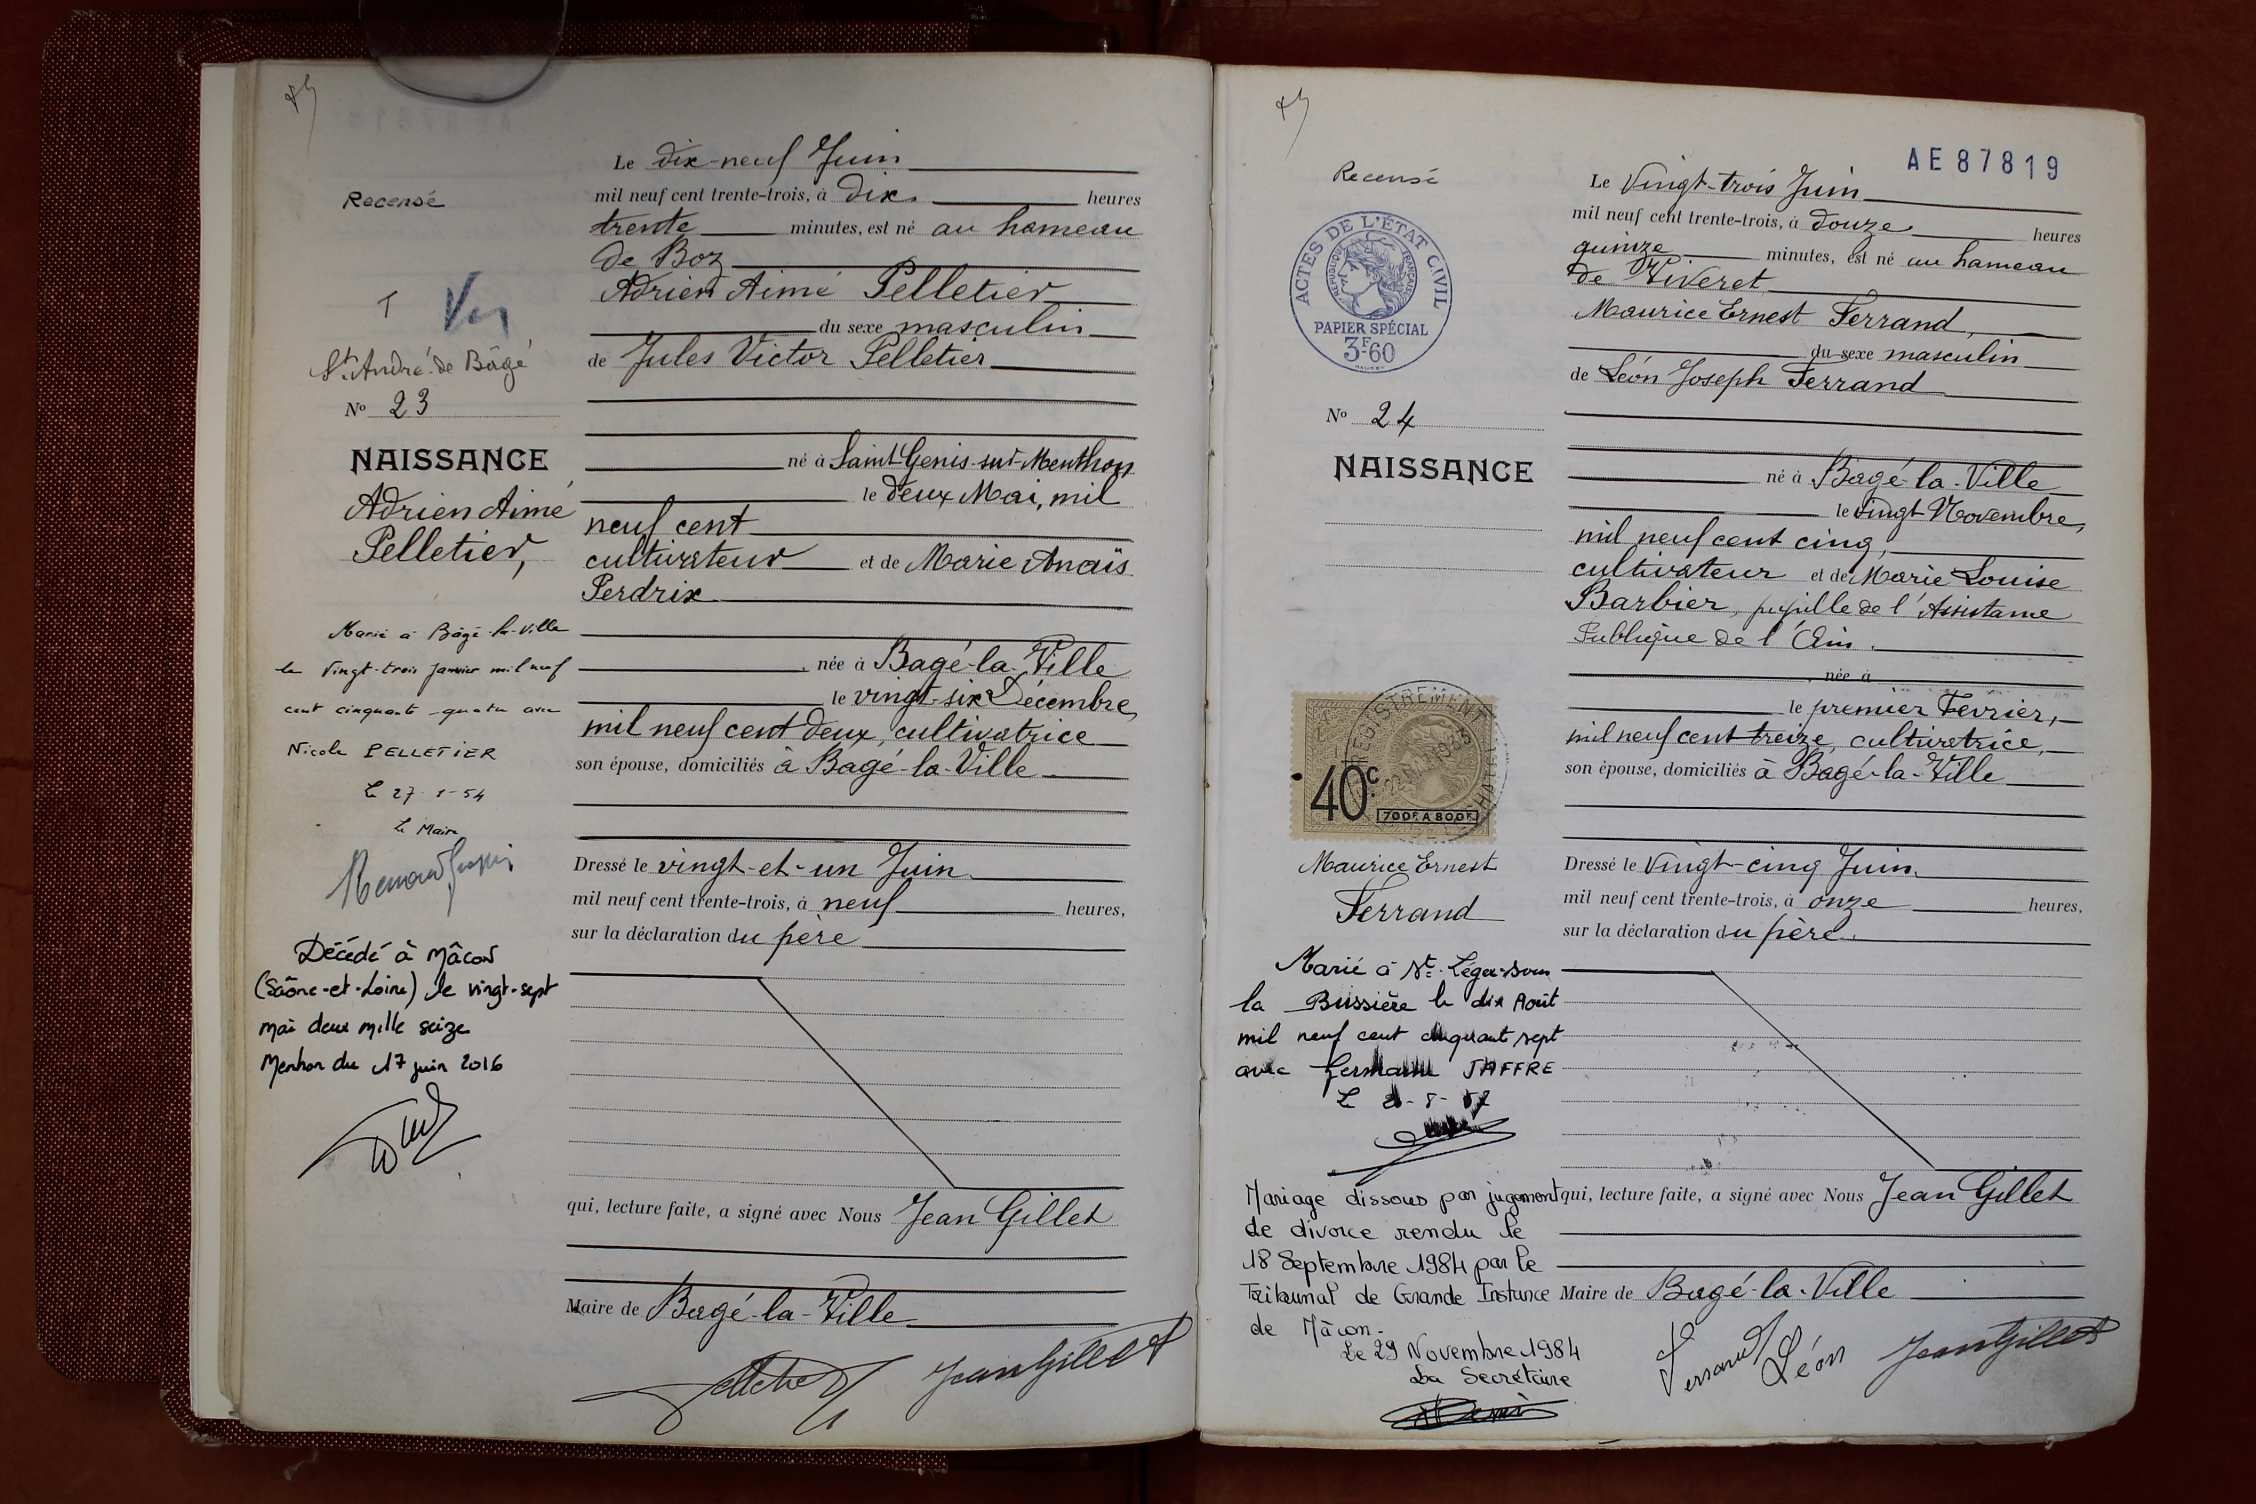 Recensé
Vu
St. André-de Bâgé
No 23
NAISSANCE
Adrien Aimé
Pelletier,
Marié à Bâgé-la-Ville
le Vingt-trois Janvier mil neuf
cent cinquante-quatre avec
Nicole PELLETIER
Le 27-1-54
Le Maire
Décédé à Mâcon
(Saône-et-Loire) le vingt-sept
mai deux mille seize
Mention du 17 juin 2016
Le dix-neuf Juin
mil neuf cent trente-trois, à dix heures
trente minutes, est né au hameau
de Boz
Adrien Aimé Pelletier
du sexe masculin
de Jules Victor Pelletier
né à Saint-Genis-sur-Menthon
le deux Mai, mil
neuf cent
cultivateur et de Marie Anaïs
Perdrix
née à Bagé-la-Ville
le vingt-six Décembre,
mil neuf cent deux, cultivatrice
son épouse, domiciliés à Bagé-la-Ville
Dressé le vingt-et-un Juin
mil neuf cent trente-trois, à neuf heures,
sur la déclaration du père
qui, lecture faite, a signé avec Nous Jean Gillet
Maire de Bagé-la-Ville
Pelletier Jean Gillet
AE87819
Recensé
ACTES DE L'ÉTAT CIVIL
RÉPUBLIQUE FRANÇAISE
PAPIER SPÉCIAL
3F60
No 24
NAISSANCE
ENREGISTREMENT
1933
40c
700F A 800F
Maurice Ernest
Ferrand
Marié à St-Léger-sous
la Bussière le dix Août
mil neuf cent cinquante sept
avec Germaine JAFFRE
Mariage dissous par jugement
de divorce rendu le
18 Septembre 1984 par le
Tribunal de Grande Instance
de Mâcon.
Le 29 Novembre 1984
La Secrétaire
Le Vingt-trois Juin
mil neuf cent trente-trois, à douze heures
quinze minutes, est né au hameau
de Viveret
Maurice Ernest Ferrand,
du sexe masculin
de Léon Joseph Ferrand
né à Bagé-la-Ville
le vingt Novembre,
mil neuf cent cinq,
cultivateur et de Marie Louise
Barbier, pupille de l'Assistance
Publique de l'Ain.
née à
le premier Février,
mil neuf cent treize, cultivatrice,
son épouse, domiciliés à Bagé-la-Ville
Dressé le vingt-cinq Juin
mil neuf cent trente-trois, à onze heures,
sur la déclaration du père.
qui, lecture faite, a signé avec Nous Jean Gillet
Maire de Bagé-la-Ville
Ferrand Léon Jean Gillet